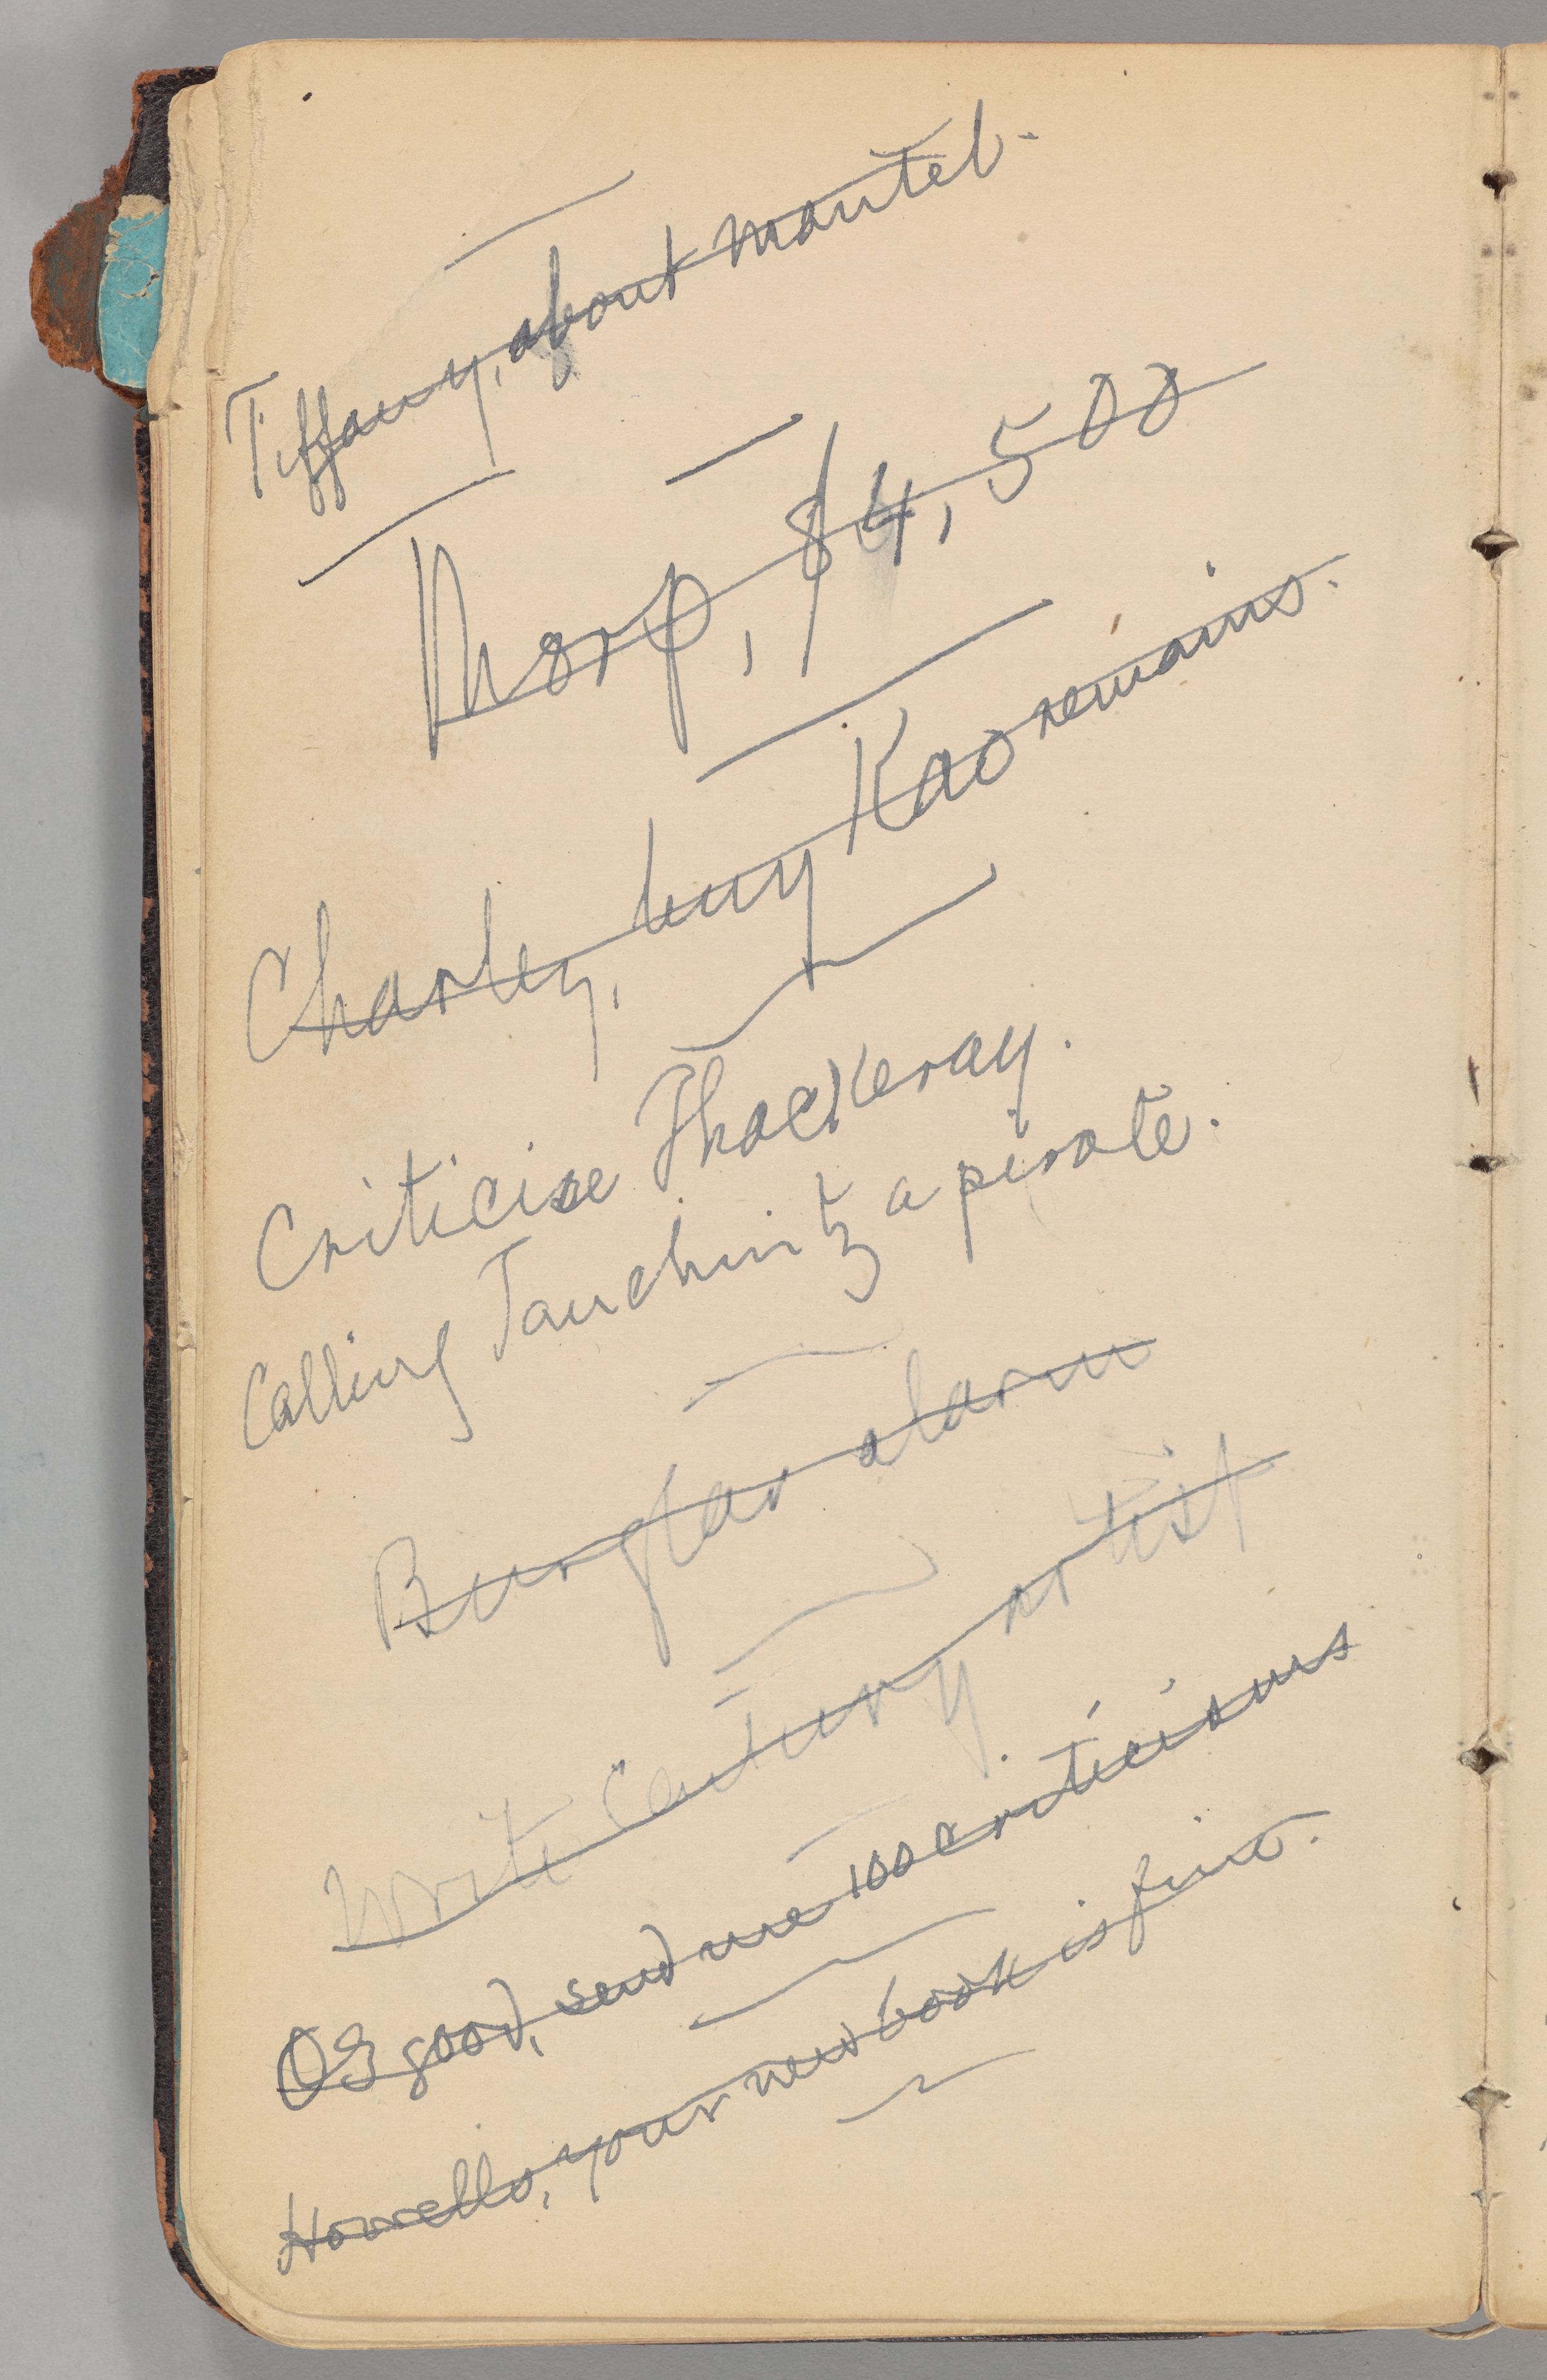 Tiffany, about mantel.
Thorp, $4,500
Charley, buy Kaoremains.
Criticise Thackeray.
Calling Tauchnitz a pirate.
Burglar alarm
Write Century artist
Osgood, send me 100 criticisms
Howells, your new book is fine.